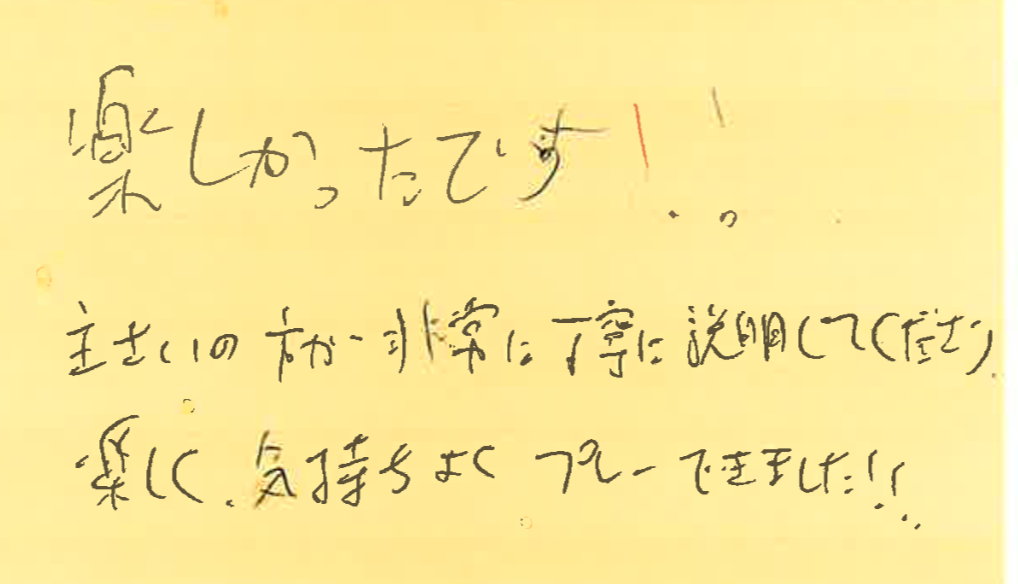 楽しかったです!!
主さいの方が非常に丁寧に説明してくださり
楽しく、気持ちよくプレーできました!!